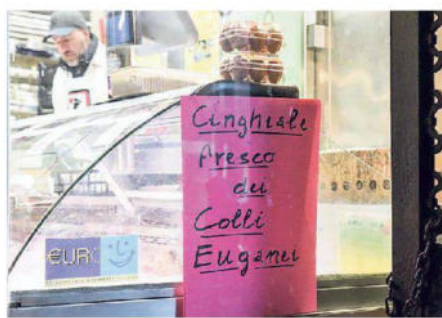 Cinghiale
fresco
dei
Colli
Euganei
EURO